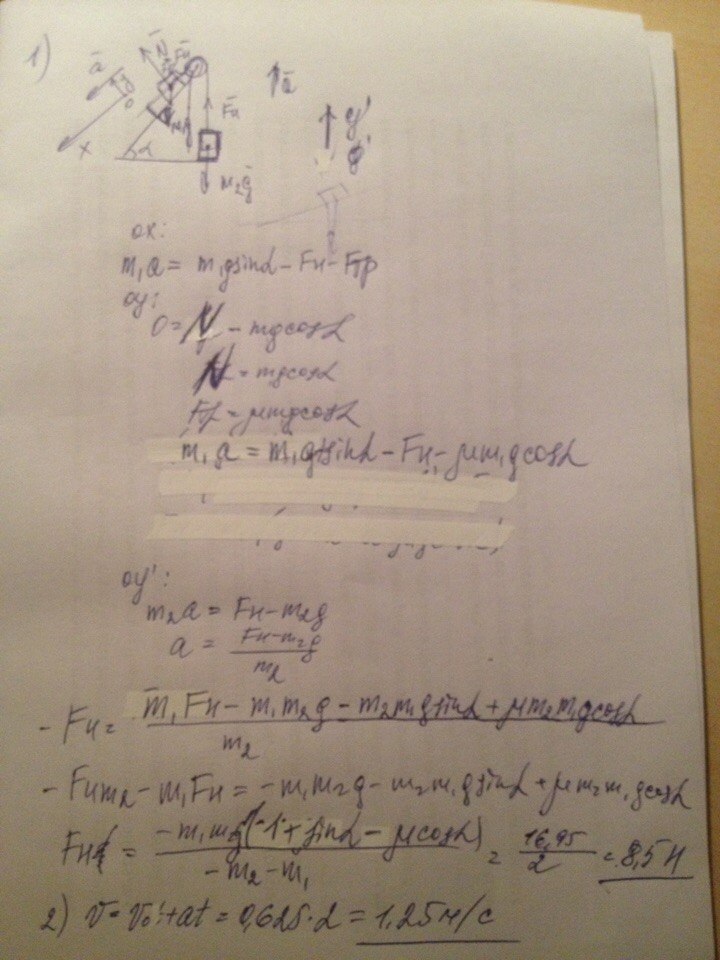 1)
a O x N Fн α a y'
Fн
m₂g
ox:
m₁a = m₁gsinα - Fн - Fтр
oy:
0 = N - mgcosα
N = mgcosα
Fтр = μmgcosα
m₁a = m₁gsinα - Fн - μm₁gcosα
oy':
m₂a = Fн - m₂g
a = (Fн - m₂g) / m₂
- Fн = (m₁Fн - m₁m₂g - m₂m₁gsinα + μm₂m₁gcosα) / m₂
- Fнm₂ - m₁Fн = -m₁m₂g - m₂m₁gsinα + μm₂m₁gcosα
Fн = -m₁m₂g(1 + sinα - μcosα) / (-m₂ - m₁) = 16,95 / 2 = 8,5 Н
2) v = v₀ + at = 0,625 · 2 = 1,25 м/с